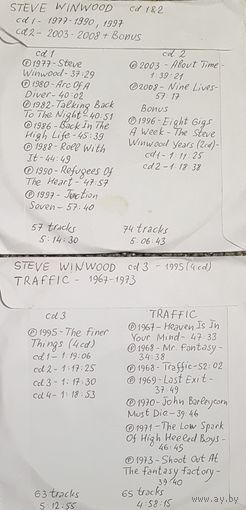 STEVE WINWOOD cd 1&2
cd 1 - 1977-1990, 1997
cd 2 - 2003-2008 + Bonus
cd 1
℗ 1977 - Steve
Winwood - 37:29
℗ 1980 - Arc Of A
Diver - 40:02
℗ 1982 - Talking Back
To The Night - 40:51
℗ 1986 - Back In The
High Life - 45:39
℗ 1988 - Roll With
It - 44:49
℗ 1990 - Refugees Of
The Heart - 47:57
℗ 1997 - Junction
Seven - 57:40
57 tracks
5:14:30
cd 2
℗ 2003 - About Time -
1:39:21
℗ 2008 - Nine Lives -
57:17
Bonus
℗ 1996 - Eight Gigs
A Week - The Steve
Winwood Years (2cd) -
cd 1 - 1:11:25
cd 2 - 1:18:38
74 tracks
5:06:43
STEVE WINWOOD cd 3 - 1995 (4cd)
TRAFFIC - 1967-1973
cd 3
℗ 1995 - The Finer
Things (4cd)
cd 1 - 1:19:06
cd 2 - 1:17:25
cd 3 - 1:17:30
cd 4 - 1:18:53
63 tracks
5:12:55
TRAFFIC
℗ 1967 - Heaven Is In
Your Mind - 47:33
℗ 1968 - Mr. Fantasy -
34:38
℗ 1968 - Traffic - 52:02
℗ 1969 - Last Exit -
37:49
℗ 1970 - John Barleycorn
Must Die - 39:46
℗ 1971 - The Low Spark
Of High Heeled Boys -
46:45
℗ 1973 - Shoot Out At
The Fantasy Factory -
39:40
65 tracks
4:58:15
www.ay.by